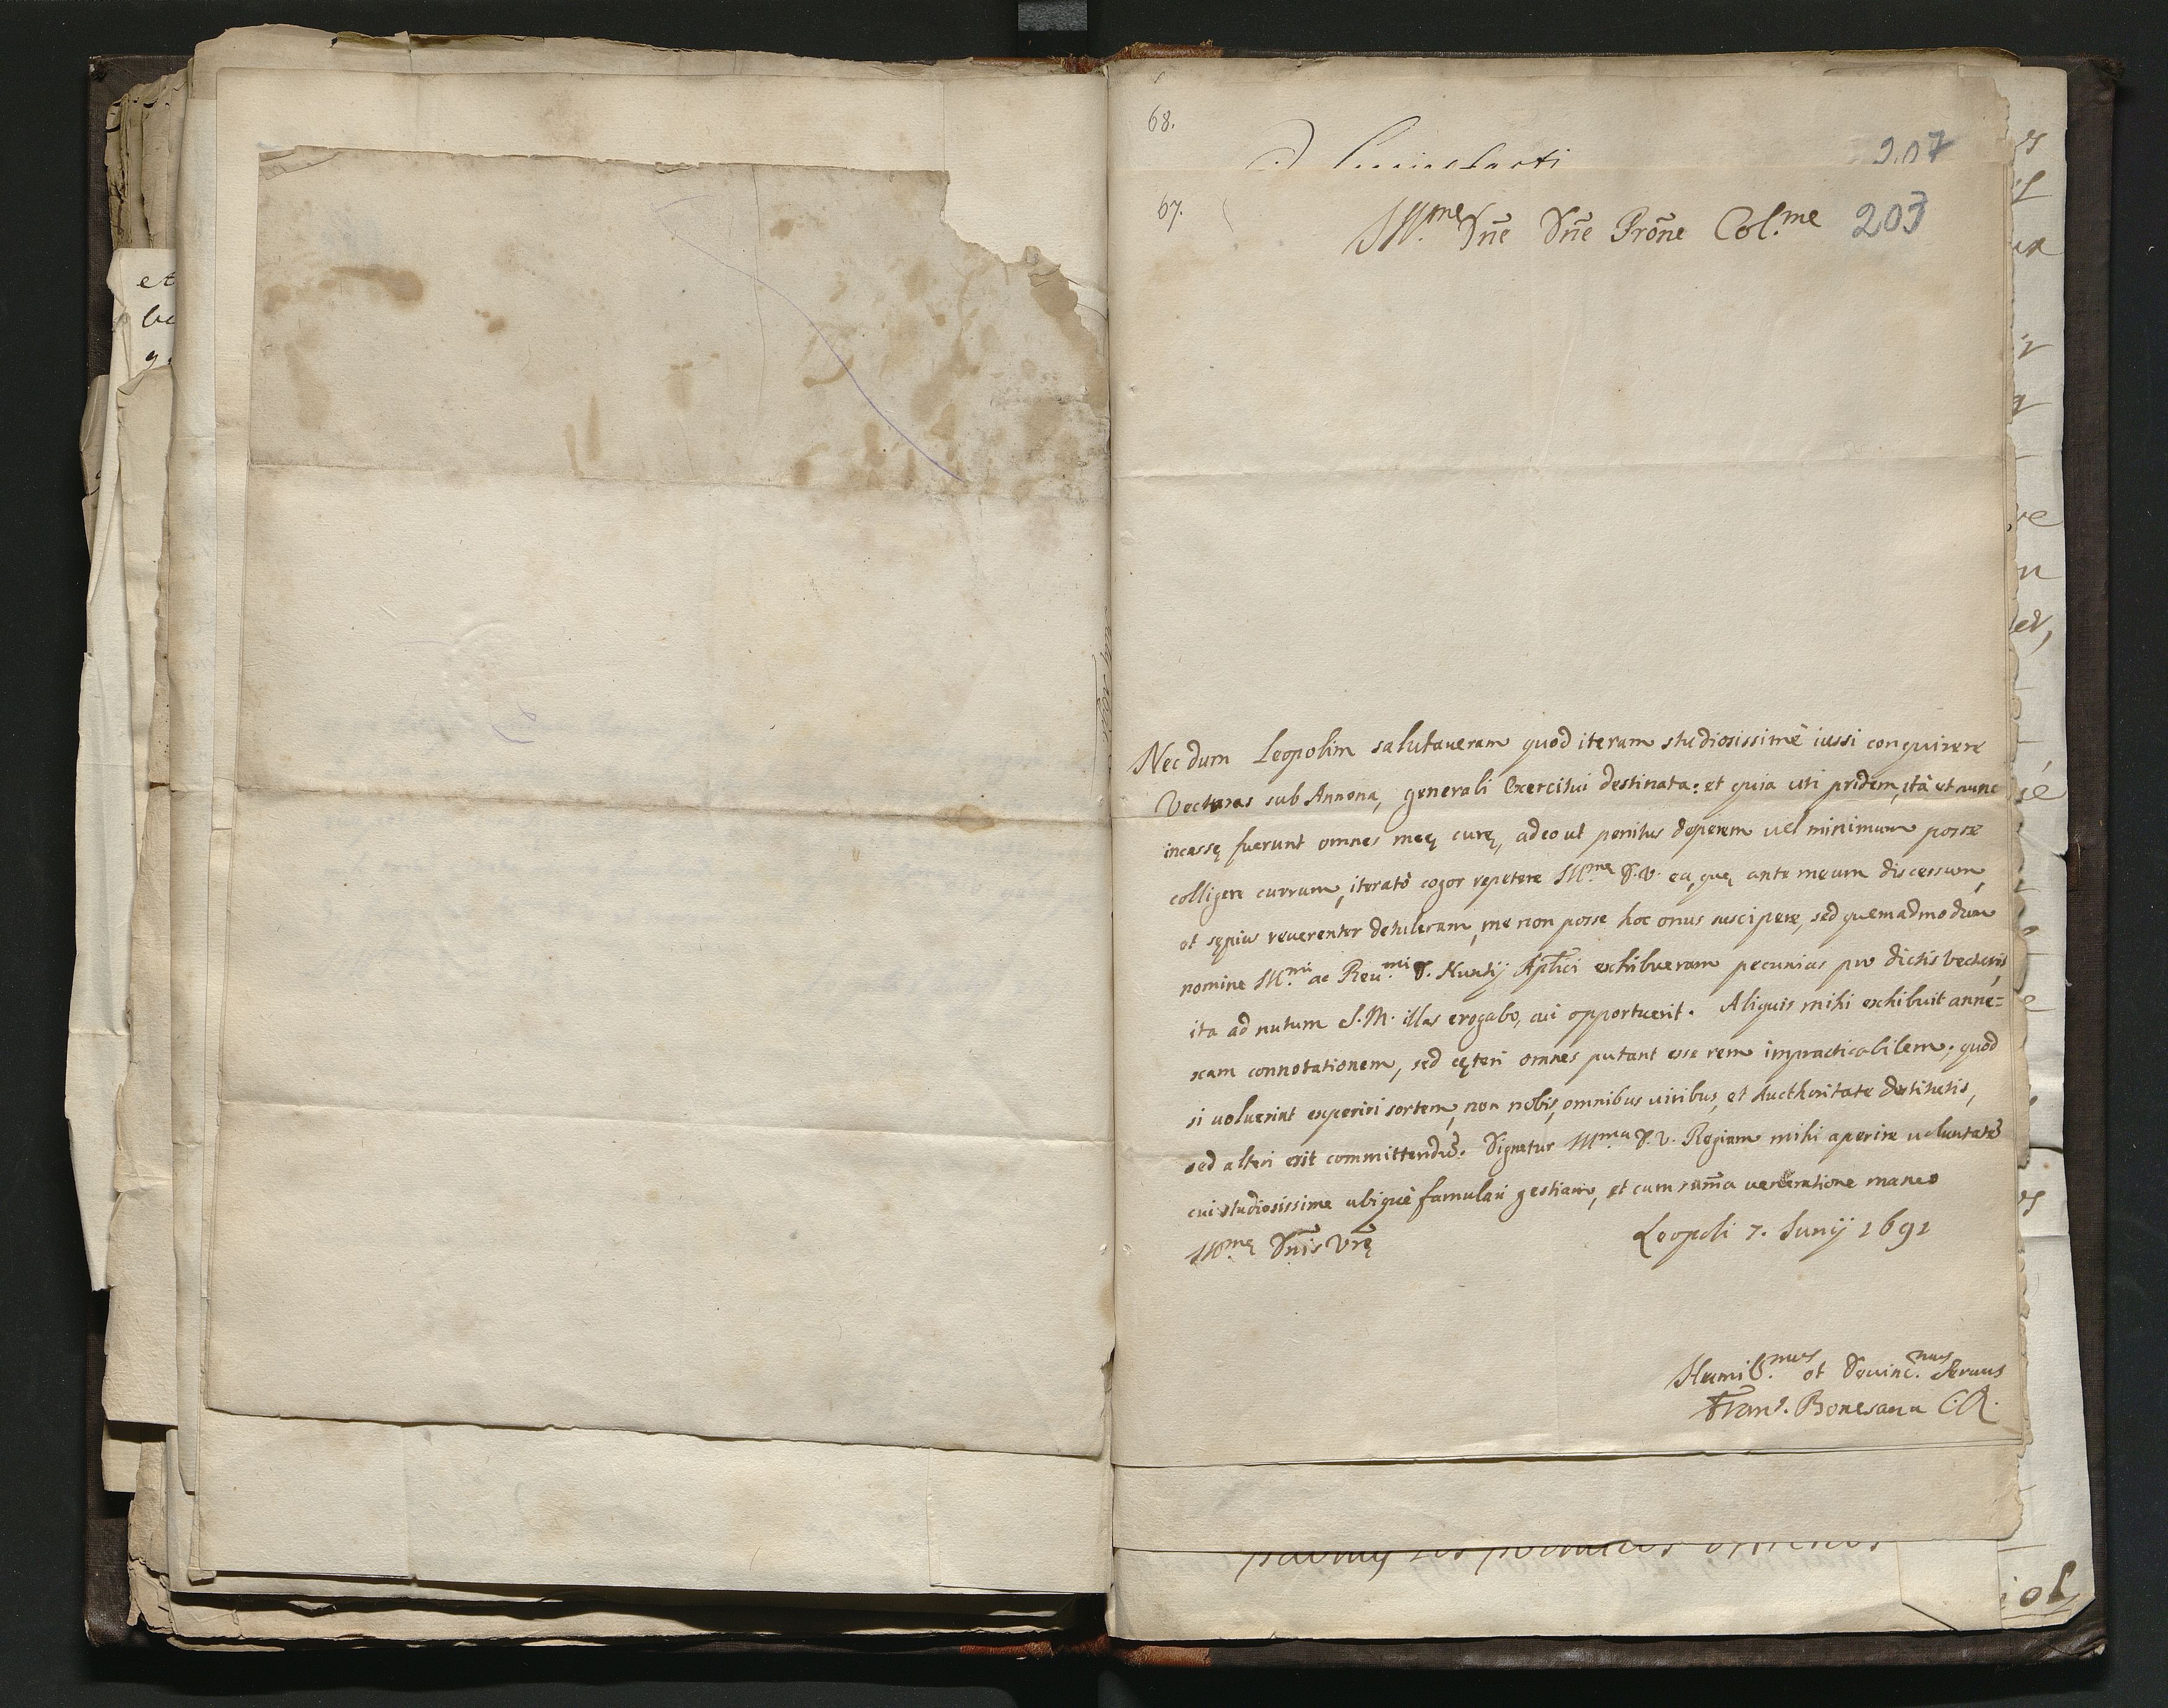 68.
207
67.
Ill.me Dn̄e Dn̄e Prōne Col.me 203
Nec dum Leopolim salutaueram quod iterum studiosissimè iussi conquirere
Vecturas sub Annona, generali Exercitui destinata: et quia uti pridem, ità et nunc
incassę fuerunt omnes meę curę, adeo ut penitus desperem uel minimum posse
colligere currum, iteratò cogor repetere Ill.mę D.V. ea, quę ante meum discessum,
et sępius reuerenter detuleram, me non posse hoc onus suscipere, sed quemadmodum
nomine Ill.mi ac Reu.mi D. Nuntij Apl̄ici exhibueram pecunias pro dictis vecturis,
ita ad nutum S.M. illas erogabo, cui opportuerit. Aliquis mihi exhibuit anne=
xam connotationem, sed cęteri omnes putant esse rem impracticabilem; quod
si uoluerint experiri sortem, non nobis, omnibus uiribus, et Aucthoritate destitutis,
sed alteri erit committendū. Dignetur Ill.ma D.V. Regiam mihi aperire uoluntatē
cui studiosissime ubiquè famulari gestiam, et cum sum̄a ueneratione maneo
Ill.mę Dn̄is Vr̄ę
Leopoli 7. Iunij 1691
Humil.mus et Deuinc.mus Seruus
Fran.s Bonesana C.R.
et